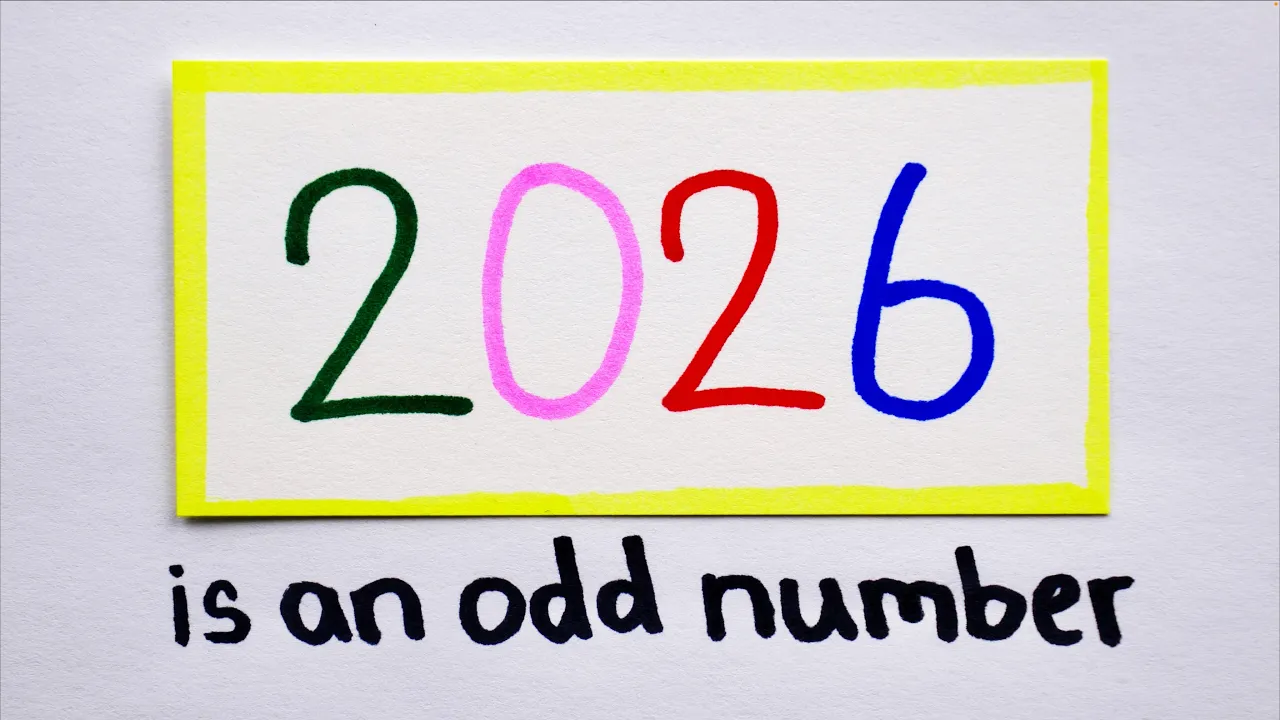 2026
is an odd number